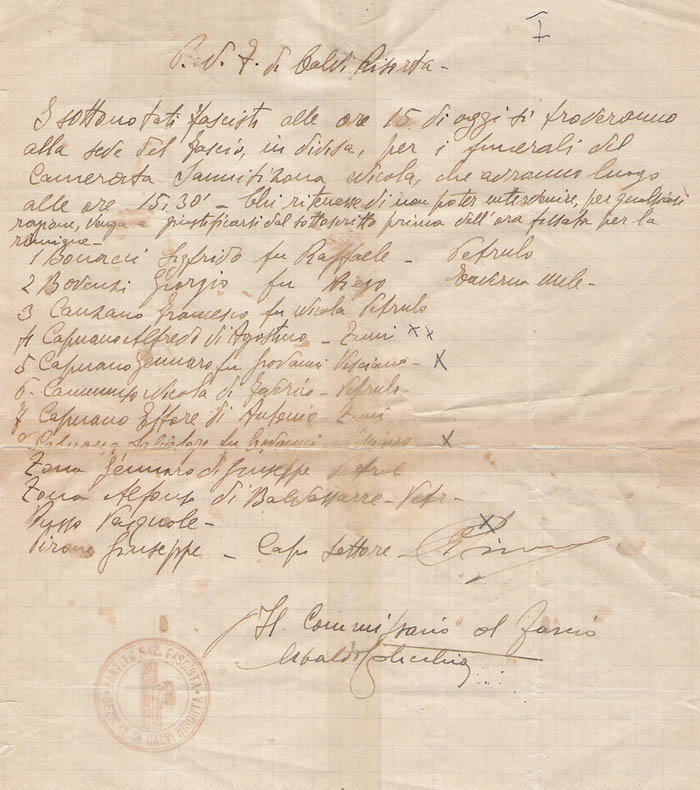 I
P. N. F. di Calvi Risorta -
I sottonotati fascisti alle ore 15 di oggi si troveranno
alla sede del fascio, in divisa, per i funerali del
Camerata Nicola, che avranno luogo
alle ore 15,30' - Chi ritenesse di non poter intervenire, per qualsiasi
ragione, venga a giustificarsi dal sottoscritto prima dell'ora fissata per la
riunione -
1 Sigfrido fu Raffaele - Petrulo
2 Giorgio fu
3 Canzano Francesco fu Nicola Petrulo
4 Capuano Alfredo di Agostino - Zuni XX
5 Capuano Gennaro fu Giovanni Visciano - X
6 - Nicola di - Petrulo -
7 Capuano Ettore di Antonio - Zuni
Salvatore fu Giovanni - Visciano - X
Zona Gennaro di Giuseppe
Zona Alfonso di Baldassarre - Petr -
Russo
Pirone Giuseppe - Capo Settore - X
Il Commissario del Fascio
Ubaldo
PARTITO NAZ. FASCISTA
SEZIONE DI CALVI RISORTA